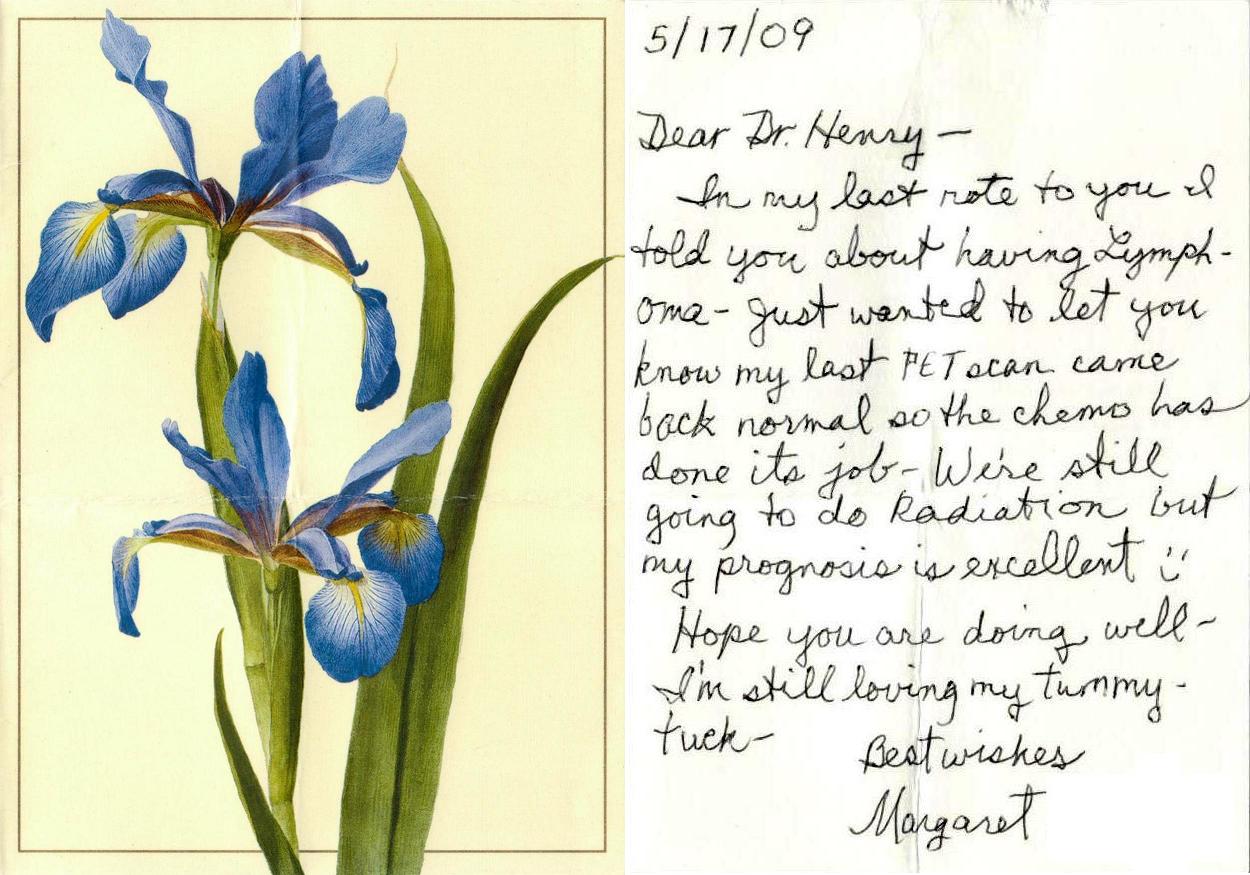 5/17/09
Dear Dr. Henry —
In my last note to you I
told you about having Lymph-
oma - Just wanted to let you
know my last PET scan came
back normal so the chemo has
done its job - We're still
going to do Radiation but
my prognosis is excellent :)
Hope you are doing well -
I'm still loving my tummy-
tuck -
Best wishes
Margaret